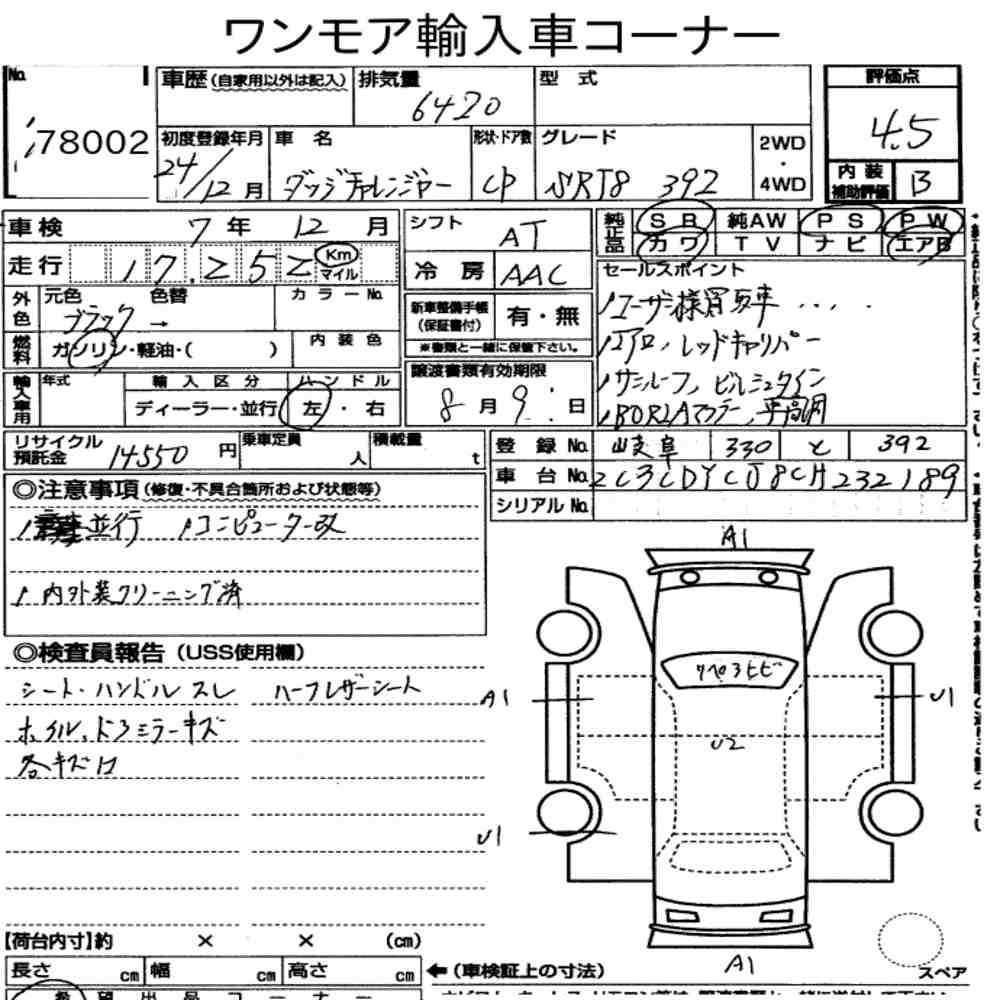 ワンモア輸入車コーナー
No.
78002
車歴(自家用以外は記入)
排気量
6420
型式
評価点
4.5
初度登録年月
24/12月
車名
ダッジチャレンジャー
形状・ドア数
CP
グレード
SRT8 392
2WD
・
4WD
内装
補助評価
B
車検
7年 12月
シフト
AT
純正品
SR 純AW PS PW
カワ TV ナビ エアB
走行
17.252
Km
マイル
冷房
AAC
セールスポイント
ユーザー様買取車....
エアロ、レッドキャリパー
サンルーフ、ビルシュタイン
BORLAマフラー、車高調
外色
元色 色替
ブラック→
カラーNo.
新車整備手帳
(保証書付)
有・無
※書類と一緒に保管下さい。
燃料
ガソリン・軽油・( )
内装色
譲渡書類有効期限
8月9日
輸入車用
年式
輸入区分
ディーラー・並行
ハンドル
左・右
リサイクル
預託金
14550円
乗車定員
人
積載量
t
登録No.
岐阜 330 と 392
車台No.
2C3CDYCJ8CH232189
シリアルNo.
◎注意事項(修復・不具合箇所および状態等)
並行 コンピューター改
内外装クリーニング済
◎検査員報告(USS使用欄)
シート・ハンドルスレ ハーフレザーシート
ホイル、ドアミラーキズ
各キズ口
A1
A1
リペ3ヒビ
U1
U2
U1
A1
スペア
【荷台内寸】約 × × (cm)
長さ cm 幅 cm 高さ cm
←(車検証上の寸法)
希望出品コーナー